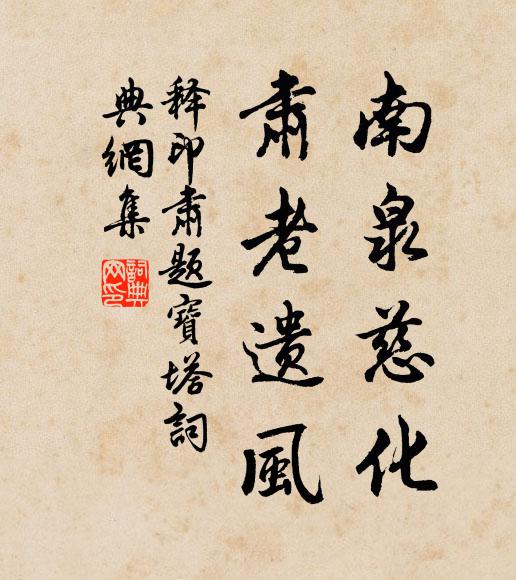 南泉慈化
肅老遺風
释印肅題寶塔詞
典網集
詞典
网印